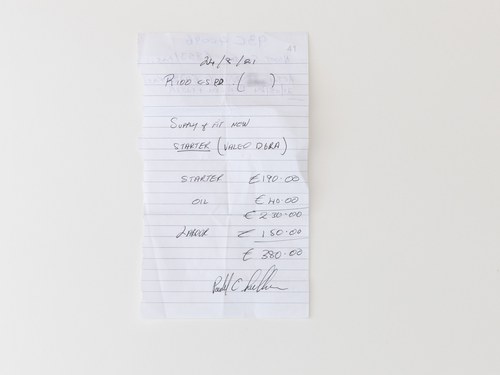 24/8/21
R100
SUPPLY & FIT NEW
STARTER (VALEO D8RA)
STARTER €190.00
OIL €40.00
€230.00
LABOUR € 150.00
€ 380.00